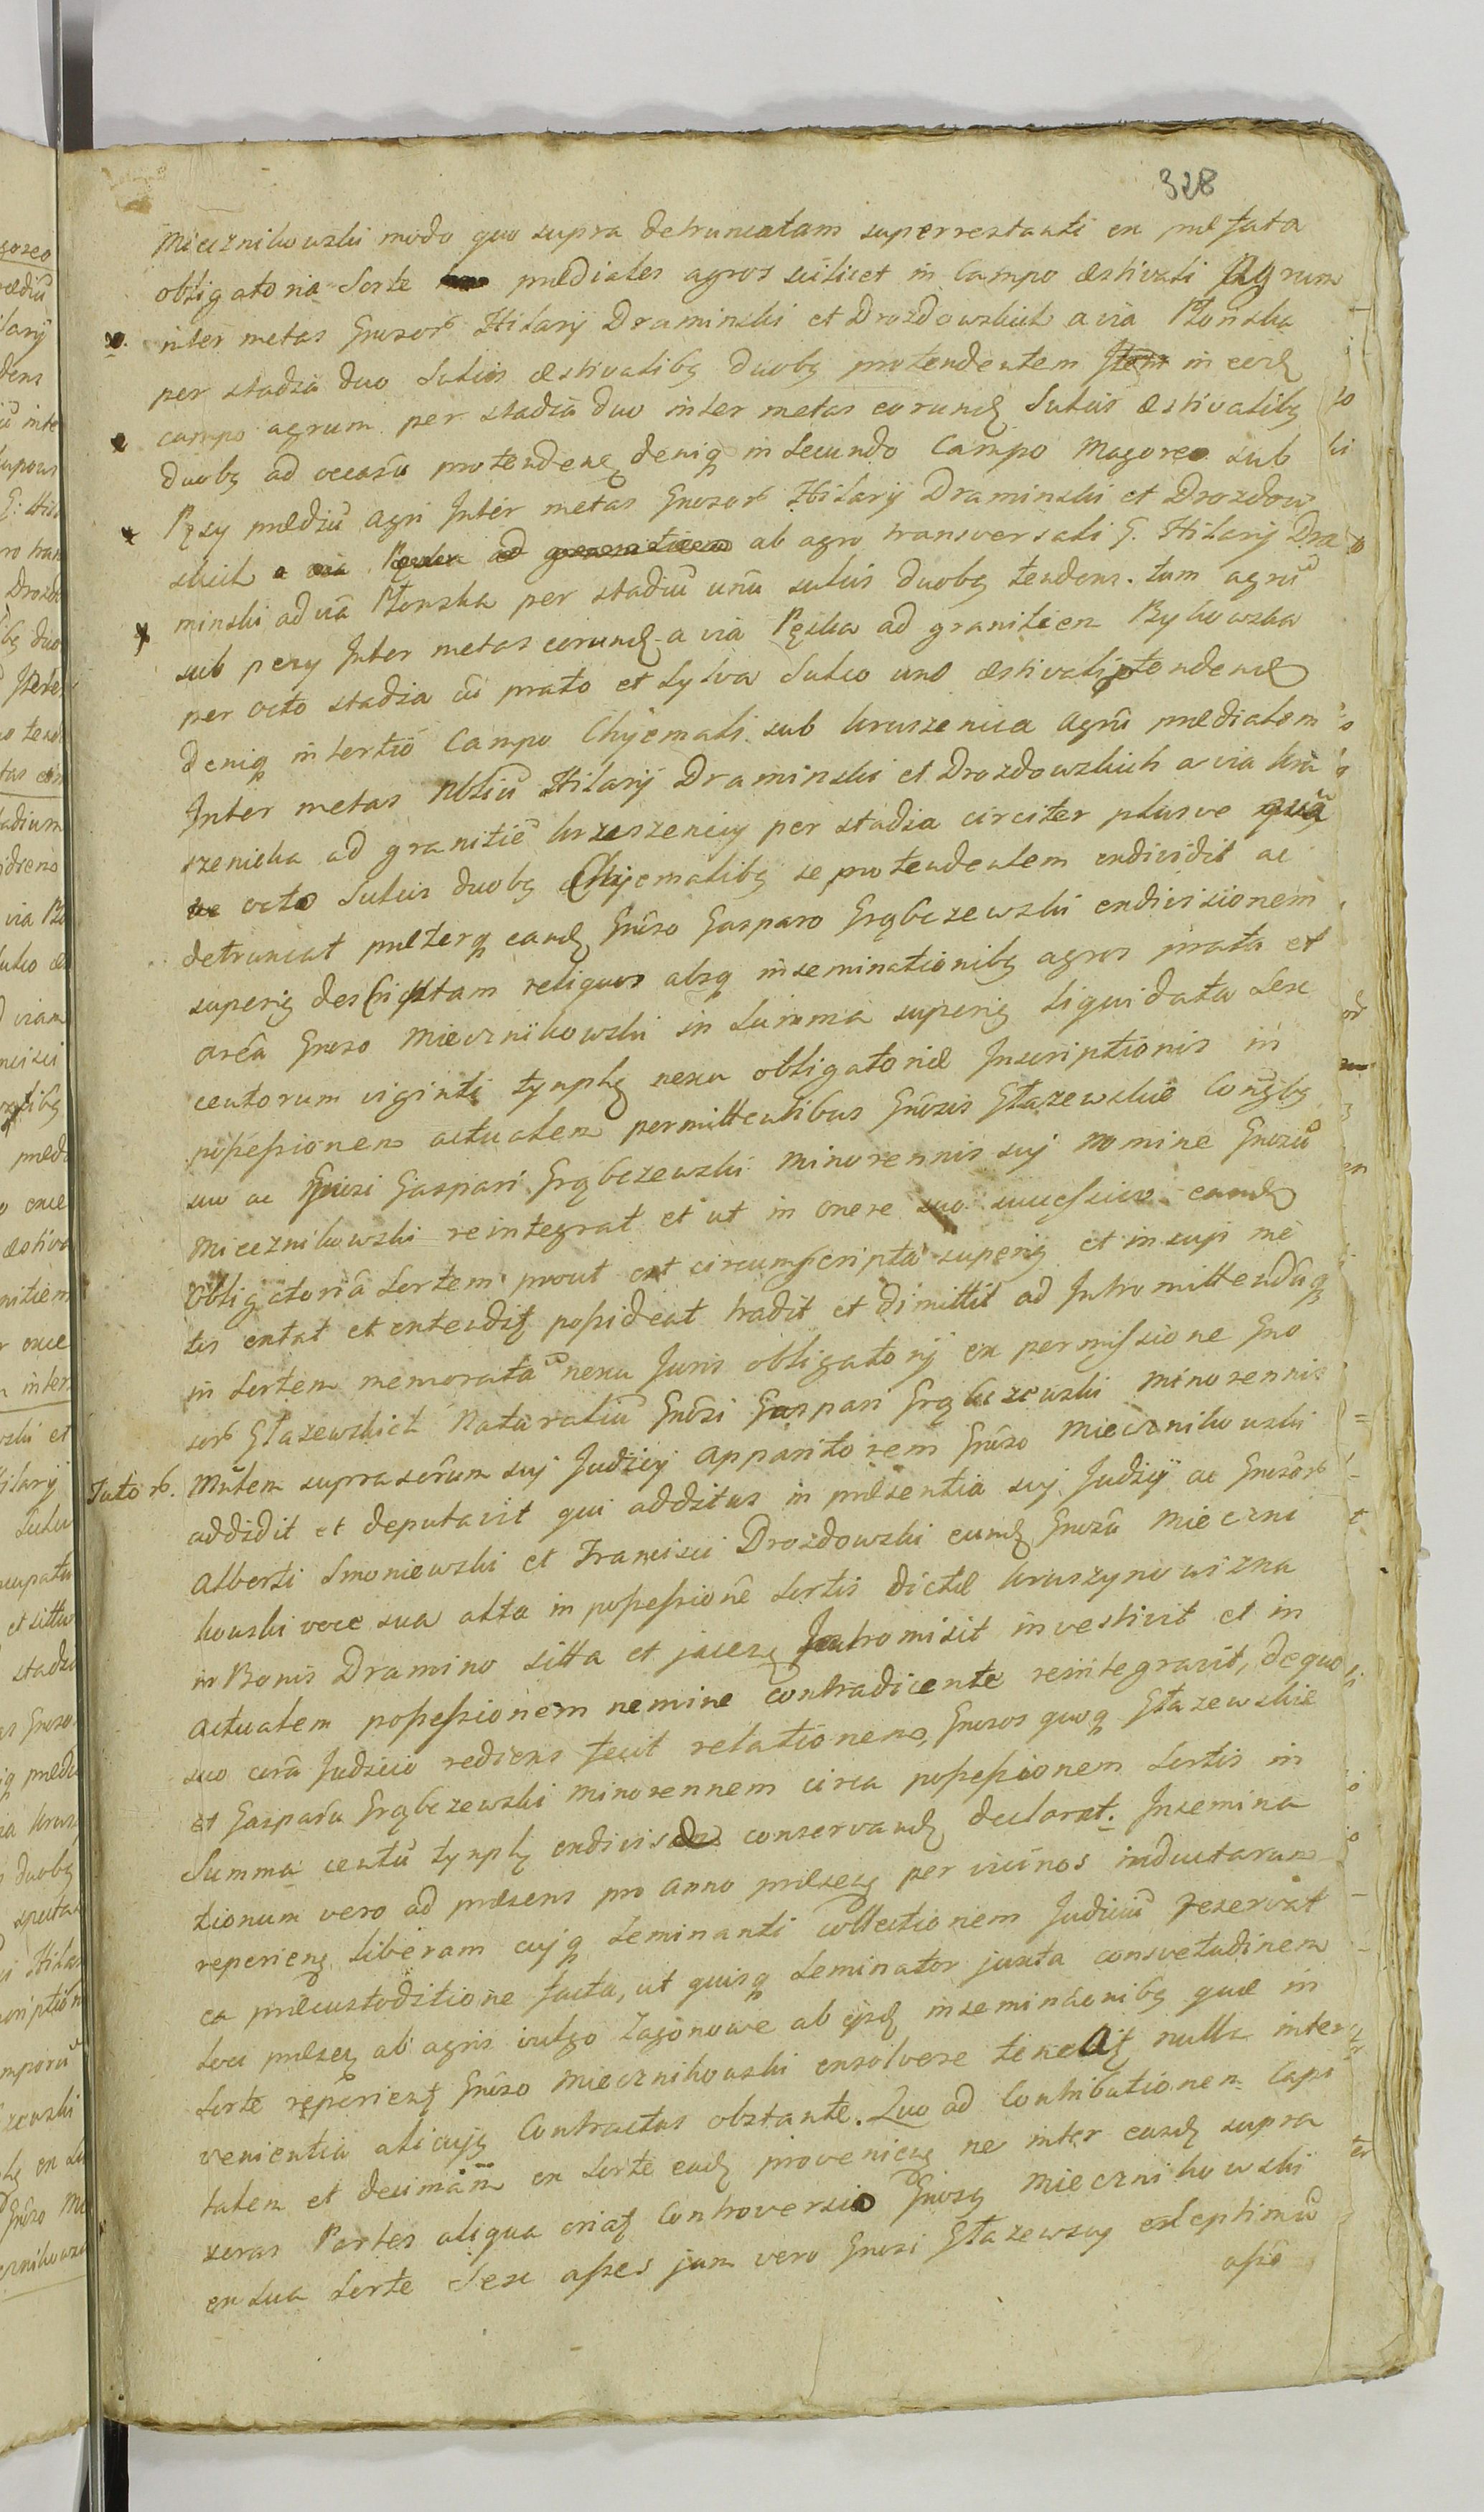 328
Miecznikowski modo quo supra detruncatam superrestanti ex præfata
obligatoria Sorte prædiales agros scilicet in Campo æstivali Agrum
inter metas Gnosorb Hilarij Draminski et Drozdowskich a via Płonska
per stadia duo Sulcis æstivalibq duobq protendentem Item in eodq
campo agrum per stadia duo inter metas eorundq Sulcis æstivalibq
duobq ad occasū protendenq deniq in Secundo Campo Magoreo sub
Pęsy prædiū agri Inter metas Gnosorb Hilarij Draminski et Drozdow
skich a via ab agro transversali G. Hilarij Dra
minski ad viā Płonska per stadiū unū sulcis duobq tendens. tum agrū
sub pesy Inter metas eorundq a via Pęska ad granitiem Rykowska
per octo stadia cū prato et Sylva Sulco uno æstivali ptendendq
deniq in tertio Campo Chyemali sub kruszenica agrū prædialem
Inter metas Nbliū Hilarij Draminski et Drozdowskich a via kru
szenicka ad granitiē kruszenicy per stadia circiter plusve
ve octo Sulcis duobq Chyemalibq se protendentem exdividit ac
detruncat præterq eandq Gnōso Gasparo Grąbczewski exdivisionem
superiq descriptam reliquos absq inseminationibq agros prata et
areā Gnoso Miecznikowski in Summa superiq liquidata Sex
centorum viginti tymphq nexu obligatoriæ Inscriptionis in
possessionem actualem permittentibus Gnōsis Głazewskie Conjgbq
suo ac Gnosi Gaspari Grąbczewski minorennis suj nomine Gnosū
Miecznikowski reintegrat et ut in onere suo successivo eandq
Obligatoriā Sortem prout est circumscripta superiq et in suis me
tis extat et extenditq possideat tradit et dimittit ad Intromittendūq
in Sortem memoratā nexu Juris obligatorij ex permissione Gno
sorb Głazewskich Naturaliū Gnōsi Gaspari Grąbczewski minorennis
Tutorb. Mntem suprascrūm suj Judicij Apparitorem Gnōso Miecznikowski
addidit et deputavit qui additus in præsentia suj Judicij ac Gnosōrb
Alberti Smoniewski et Francisci Drozdowski eundq Gnosū Mieczni
kowski voce sua alta in possessionē Sortis dictæ kruszynowizna
in Bonis Dramino sitta et jacenq Intromisit investivit et in
actualem possessionem nemine contradicente reintegravit, de quo
suo corā Judicio rediens fecit relationem, Gnosos quoq Głazewskie
et Gasparū Grąbczewski minorennem circa possessionem Sortis in
Summa centū tymphq exdivisæ conservandq declarat. Insemina
tionum vero ad præsens pro anno præsenq per vicinos inductarum
reperienq liberam cujq Seminanti collectionem Judiciū reservat
ea præcustoditione facta, ut quisq Seminator juxta consvetudinem
Loci præsenq ab agris vulgo Zagonowe ab ipsdq inseminaōnibq quæ in
Sorte reperientq Gnōso Miecznikowski exsolvere teneatq nulla inter
venientia alicujq Contractus obstante. Quo ad Contributionem Capi
talem et decimam ex Sorte eadq provenienq ne inter easdq supra
scras Partes aliqua oriatq Controversia Gnosq Miecznikowski
ex Sua Sorte Sex asses jam vero Gnosi Głazewscy exleptimū
asse